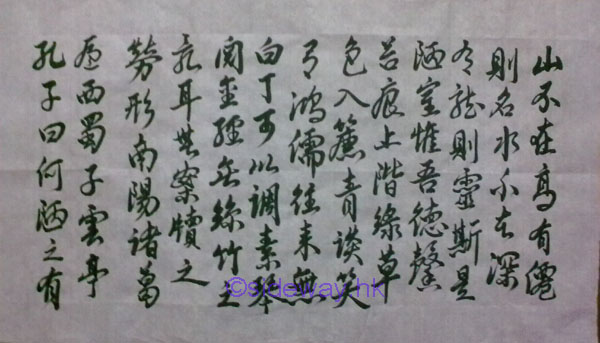 山不在高有僊
則名水不在深
有龍則靈斯是
陋室惟吾德馨
苔痕上階綠草
色入簾青談笑
有鴻儒往來無
白丁可以調素琴
閱金經無絲竹之
亂耳無案牘之
勞形南陽諸葛
廬西蜀子雲亭
孔子曰何陋之有
©sideway.hk